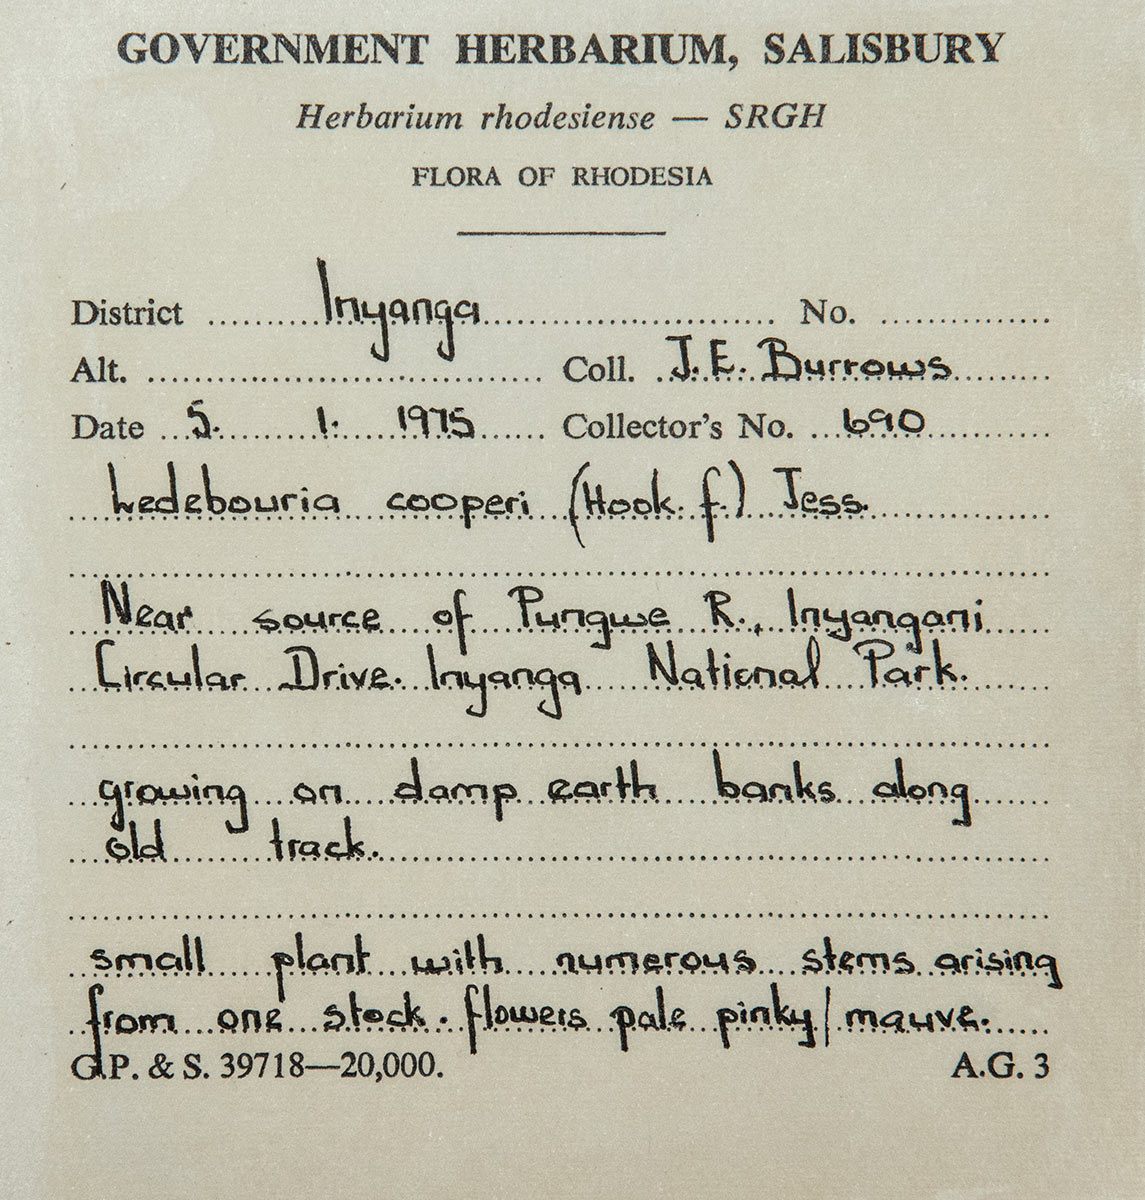 GOVERNMENT HERBARIUM, SALISBURY
Herbarium rhodesiense — SRGH
FLORA OF RHODESIA
District Inyanga No.
Alt. Coll. J. E. Burrows
Date 5. 1. 1975 Collector's No. 690
Ledebouria cooperi (Hook. f.) Jess.
Near source of Pungwe R., Inyangani
Circular Drive. Inyanga National Park.
growing on damp earth banks along
old track.
small plant with numerous stems arising
from one stock. flowers pale pinky/mauve.
G.P. & S. 39718—20,000. A.G. 3